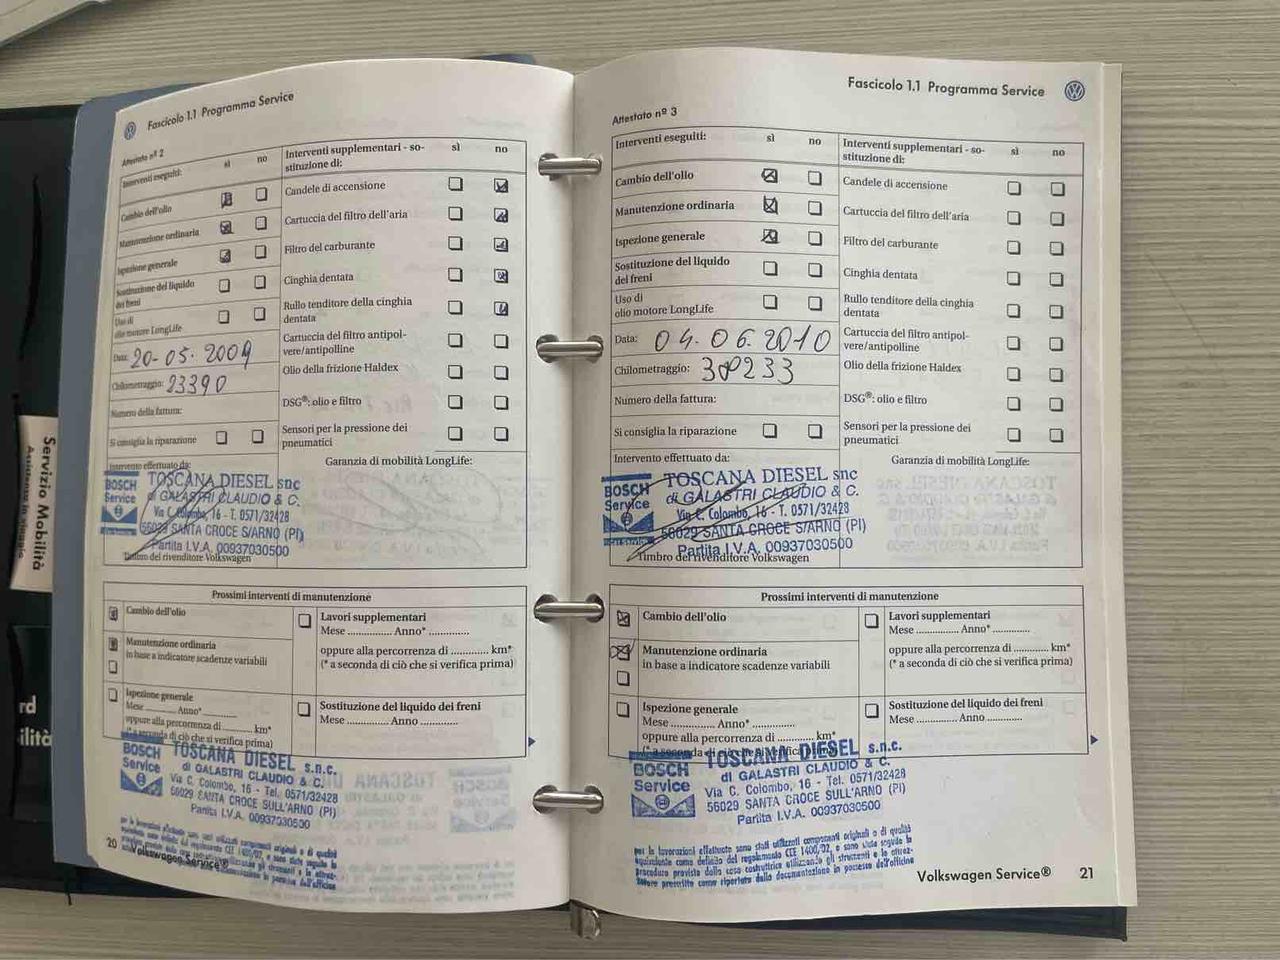 Servizio Mobilità
rd
ilità
Fascicolo 1.1 Programma Service
Attestato nº 2
Interventi eseguiti:
sì
no
Interventi supplementari - so-
stituzione di:
sì
no
Cambio dell'olio
Manutenzione ordinaria
Ispezione generale
Sostituzione del liquido
dei freni
Uso di
olio motore LongLife
Data: 20-05-2009
Chilometraggio: 23390
Numero della fattura:
Si consiglia la riparazione
Candele di accensione
Cartuccia del filtro dell'aria
Filtro del carburante
Cinghia dentata
Rullo tenditore della cinghia
dentata
Cartuccia del filtro antipol-
vere/antipolline
Olio della frizione Haldex
DSG®: olio e filtro
Sensori per la pressione dei
pneumatici
Intervento effettuato da:
Garanzia di mobilità LongLife:
BOSCH
Service
TOSCANA DIESEL snc
di GALASTRI CLAUDIO & C.
Via C. Colombo, 16 - T. 0571/32428
56029 SANTA CROCE S/ARNO (PI)
Partita I.V.A. 00937030500
Timbro del rivenditore Volkswagen
Prossimi interventi di manutenzione
Cambio dell'olio
Manutenzione ordinaria
in base a indicatore scadenze variabili
Ispezione generale
Mese .............. Anno* ..............
oppure alla percorrenza di ............ km*
(* a seconda di ciò che si verifica prima)
Lavori supplementari
Mese .............. Anno* ..............
oppure alla percorrenza di ............ km*
(* a seconda di ciò che si verifica prima)
Sostituzione del liquido dei freni
Mese .............. Anno ..............
BOSCH
Service
TOSCANA DIESEL s.n.c.
di GALASTRI CLAUDIO & C.
Via C. Colombo, 16 - Tel. 0571/32428
56029 SANTA CROCE SULL'ARNO (PI)
Partita I.V.A. 00937030500
20
Volkswagen Service®
Fascicolo 1.1 Programma Service
Attestato nº 3
Interventi eseguiti:
sì
no
Interventi supplementari - so-
stituzione di:
sì
no
Cambio dell'olio
Manutenzione ordinaria
Ispezione generale
Sostituzione del liquido
dei freni
Uso di
olio motore LongLife
Data: 04.06.2010
Chilometraggio: 30233
Numero della fattura:
Si consiglia la riparazione
Candele di accensione
Cartuccia del filtro dell'aria
Filtro del carburante
Cinghia dentata
Rullo tenditore della cinghia
dentata
Cartuccia del filtro antipol-
vere/antipolline
Olio della frizione Haldex
DSG®: olio e filtro
Sensori per la pressione dei
pneumatici
Intervento effettuato da:
Garanzia di mobilità LongLife:
BOSCH
Service
TOSCANA DIESEL snc
di GALASTRI CLAUDIO & C.
Via C. Colombo, 16 - T. 0571/32428
56029 SANTA CROCE S/ARNO (PI)
Partita I.V.A. 00937030500
Timbro del rivenditore Volkswagen
Prossimi interventi di manutenzione
Cambio dell'olio
Manutenzione ordinaria
in base a indicatore scadenze variabili
Ispezione generale
Mese .............. Anno* ..............
oppure alla percorrenza di ............ km*
(* a seconda di ciò che si verifica prima)
Lavori supplementari
Mese .............. Anno* ..............
oppure alla percorrenza di ............ km*
(* a seconda di ciò che si verifica prima)
Sostituzione del liquido dei freni
Mese .............. Anno ..............
BOSCH
Service
TOSCANA DIESEL s.n.c.
di GALASTRI CLAUDIO & C.
Via C. Colombo, 16 - Tel. 0571/32428
56029 SANTA CROCE SULL'ARNO (PI)
Partita I.V.A. 00937030500
per le lavorazioni effettuate sono stati utilizzati componenti originali o di qualità
equivalente come definito dal regolamento CEE 1400/02, e sono state seguite le
procedure previste dalla casa costruttrice utilizzando gli strumenti e le attrez-
zature prescritte come riportato dalla documentazione in possesso dell'officina
Volkswagen Service®
21